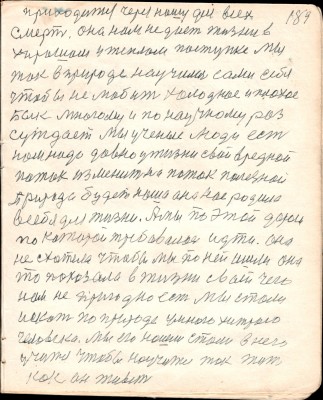 184
приходится через нашу для всех
смерть. она нам не дает жизни в
хорошом и теплом поступке Мы
так в природе научились сами себя
чтобы не любить холодное и плохое
Как многому и по научному раз
суждает Мы ученые люди ест
нам надо давно у жизни свой вредной
поток изменить на поток полезной
природа будет наша она нас родила
всебя для жизни. А мы по этой дороги
по которой требовалось идти. она
не хотела чтобы мы по ней шли она
то показала в жизни своей чего
нам не пригодно ест Мы стали
искать по природе умного хитрого
человека. Мы его нашли стали в него
учится чтобы научится так жит
как он живет